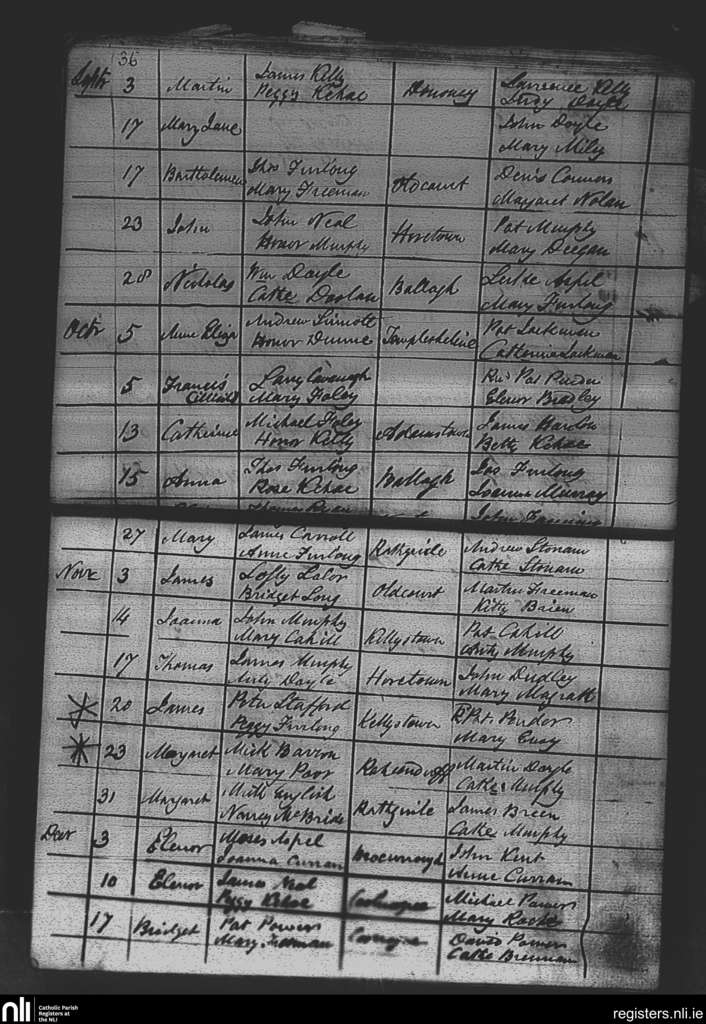 136
Septr 3 Martin James Kelly Lawrence Kelly
Peggy Kehoe Doyle
17 Mary Jane John Doyle
Mary Miley
17 Bartholomew Thos Furlong Oldcourt Denis Connors
Mary Freeman Margaret Nolan
23 John John Neal Horetown Pat Murphy
Honor Murphy Mary Deegan
28 Nicholas Wm Doyle Ballagh Aspel
Cathe Doolan Mary Furlong
Octr 5 Anne Eliza Andrew Sinnott Templeshelin Pat Larkman
Honor Dunne Catherine Larkman
5 Francis Larry Cavenagh Revd Pat
Mary Foley Elenor Bradley
13 Catherine Michael Foley Adamstown James
Honor Kelly Betty Kehoe
15 Anna Thos Furlong Ballagh Jas Furlong
Rose Kehoe Joanna Murray
Thomas John
27 Mary James Carroll Rathgeile Andrew Stonam
Anne Furlong Cathe Stonam
Novr 3 James Lofty Lalor Oldcourt Martin Freeman
Bridget Long Kitty Brien
14 Joanna John Murphy Kellystown Pat Cahill
Mary Cahill Murphy
17 Thomas James Murphy Horetown John Dudley
Doyle Mary Magrath
20 James Peter Stafford Kellystown
Peggy Furlong Mary
23 Margaret Mick Barron Martin Doyle
Mary Poor Cathe Murphy
31 Margaret English Rathgeile James Breen
Nancy McBride Cathe Murphy
Decr 3 Elenor Moses Aspel Macmurrough John Kent
Joanna Curran Anne Curran
10 Elenor James Neal Michael Powers
Peggy Kehoe Mary Roche
17 Bridget Pat Powers David Powers
Mary Cathe Brennan
nli
Catholic Parish
Registers at
the NLI
registers.nli.ie